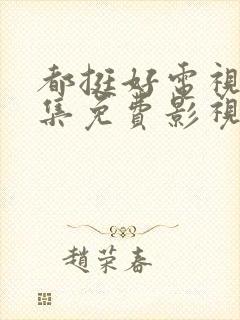 都挺好電視
集免費影視
趙荣春